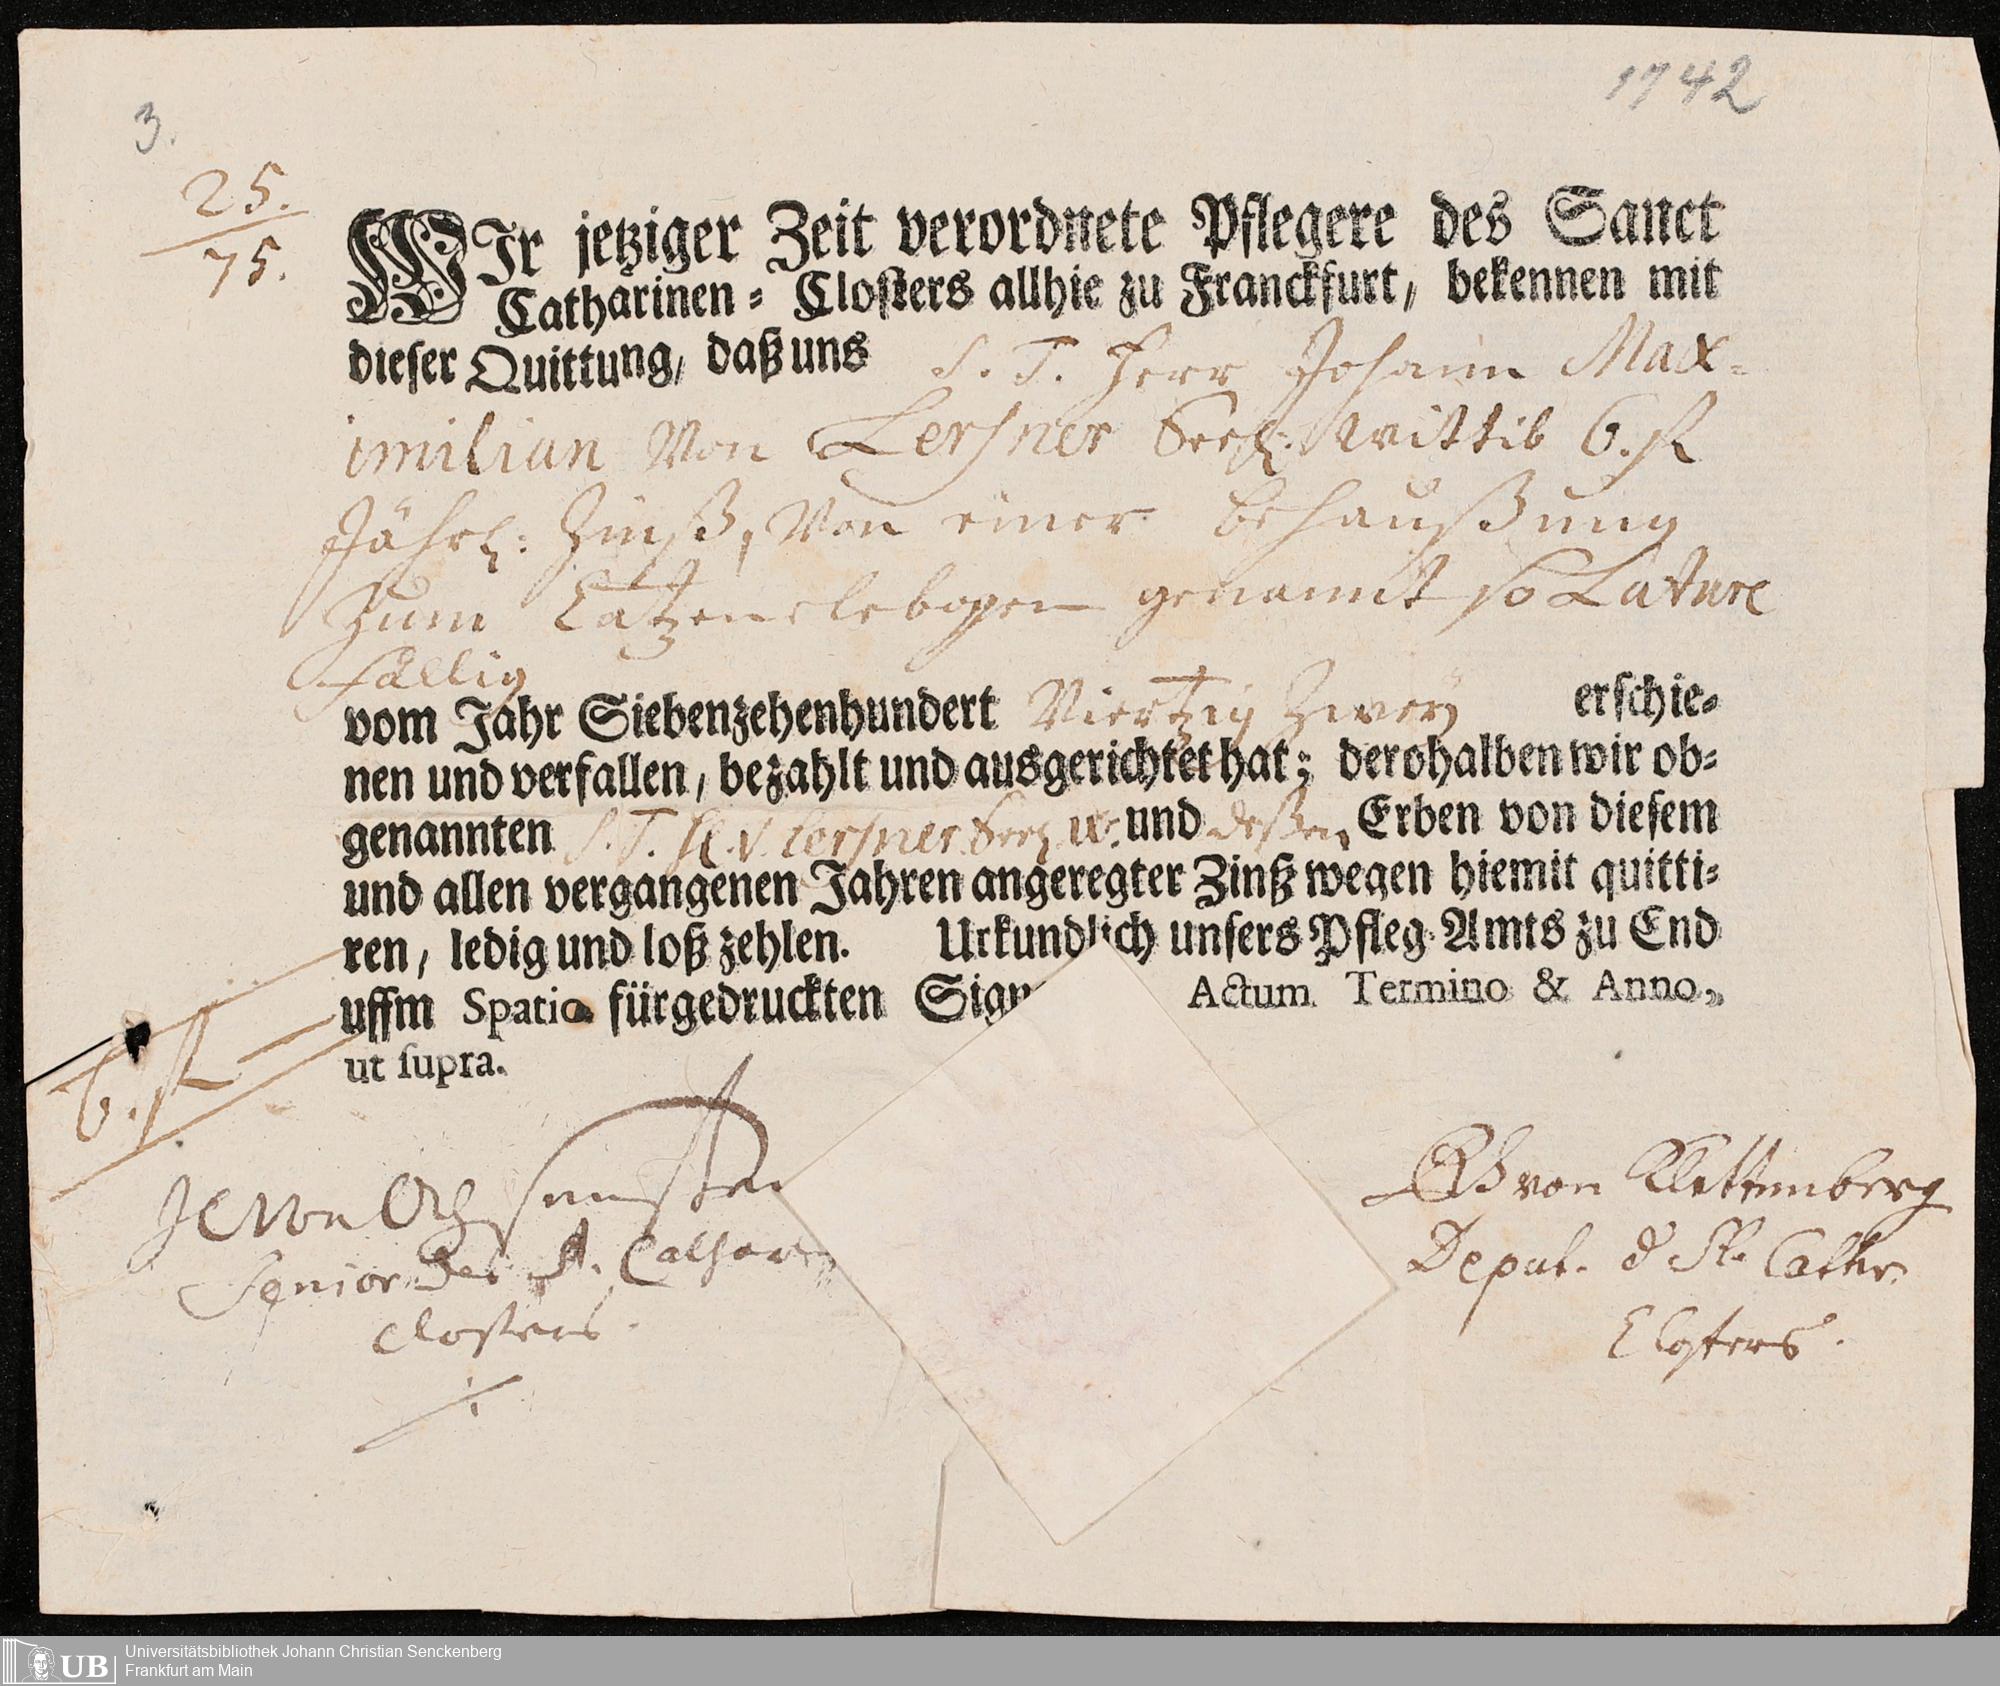 1742
3.
25.
75.
WIr jetziger Zeit verordnete Pflegere des Sanct
Catharinen⸗ Closters allhie zu Franckfurt, bekennen mit
dieser Quittung, daß uns S. T. Herr Johann Max⸗
imilian Von Lersner Seel: Wittib 6. fl
Jährl: Zinß, Von einer behaußung
Zum Catzenelebogen genannt so Lature
fällig
vom Jahr Siebenzehenhundert Viertzig Zwey erschie⸗
nen und verfallen, bezahlt und ausgerichtet hat; derohalben wir ob⸗
genannten S. T. H. V. Lersner Seel. W. und deßen Erben von diesem
und allen vergangenen Jahren angeregter Zinß wegen hiemit quitti⸗
ren, ledig und loß zehlen. Urkundlich unsers Pfleg⸗Amts zu End
uffm Spatio fürgedruckten Sign Actum Termino & Anno,
ut supra.
6. fl
von Klettenberg
Senior des St. Cathar
Deput. d St. Cathr.
Closters.
Closters.
Universitätsbibliothek Johann Christian Senckenberg
UB Frankfurt am Main